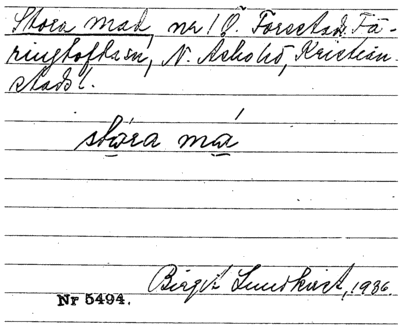 Stora mad, nr 1 Ö. Forestad, Fä-
ringtoftasn, N. Åsbohd, Kristian-
stads l.
stóra má
Birgit Lundkvist, 1936.
Nr 5494.